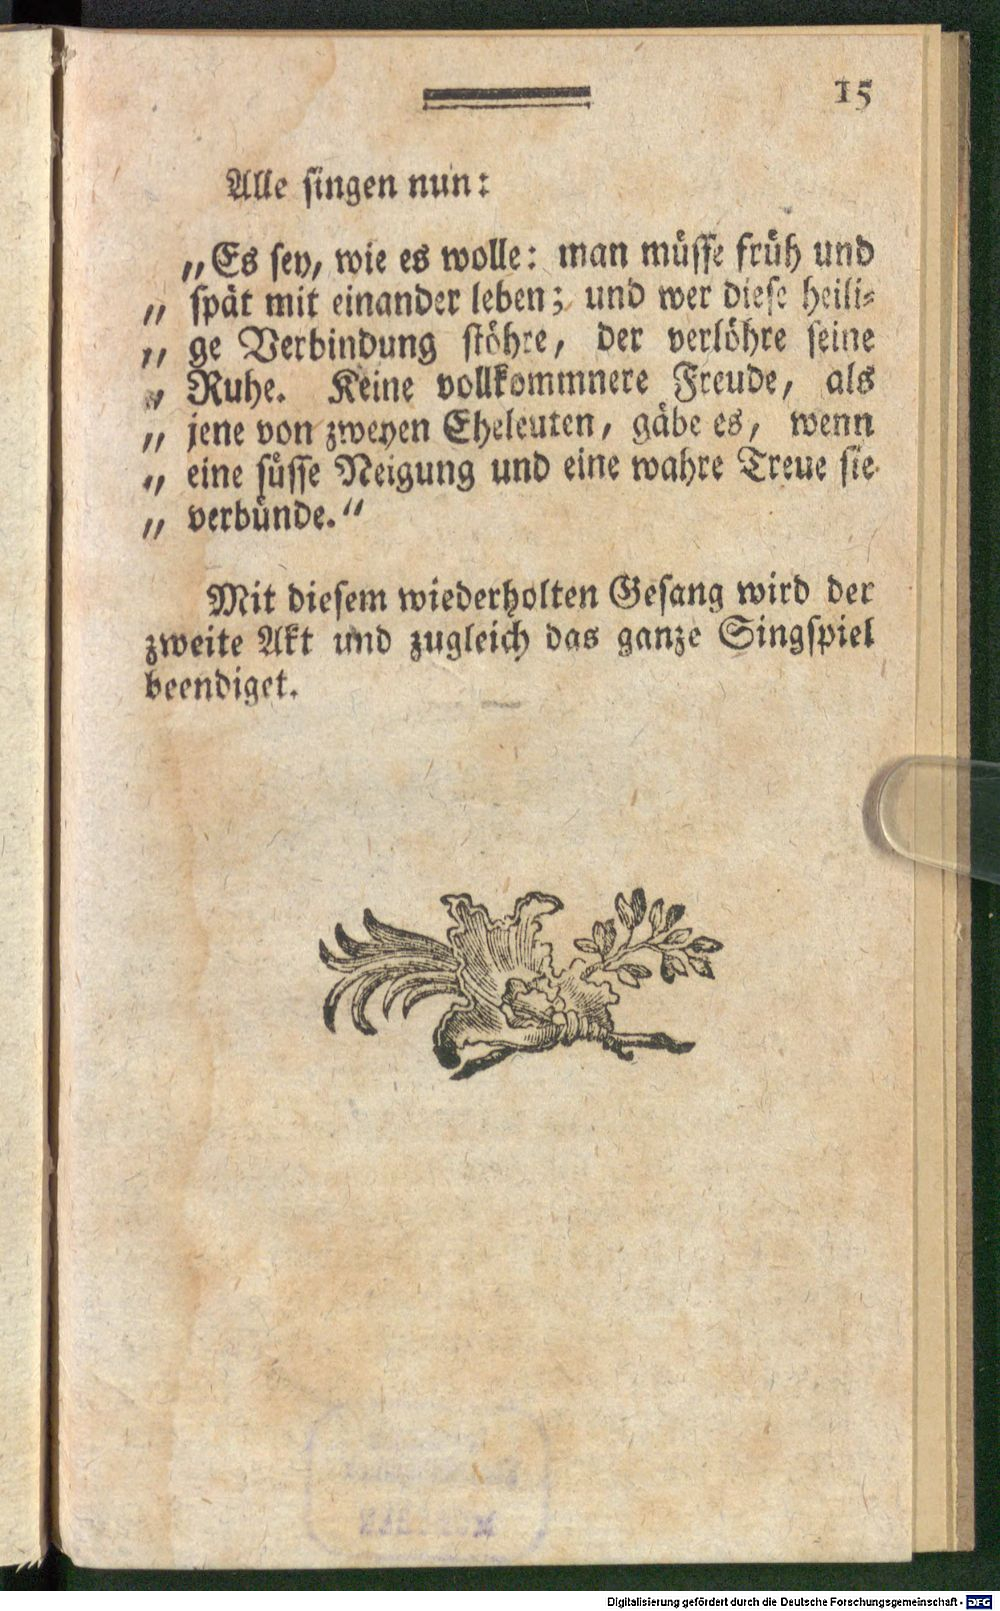 15
Alle singen nun:
„Es sey, wie es wolle: man müsse früh und
„ spät mit einander leben; und wer diese heili-
„ ge Verbindung stöhre, der verlöhre seine
„ Ruhe. Keine vollkommnere Freude, als
„ jene von zweyen Eheleuten, gäbe es, wenn
„ eine süsse Neigung und eine wahre Treue sie
„ verbünde.“
Mit diesem wiederholten Gesang wird der
zweite Akt und zugleich das ganze Singspiel
beendiget.
Digitalisierung gefördert durch die Deutsche Forschungsgemeinschaft - DFG